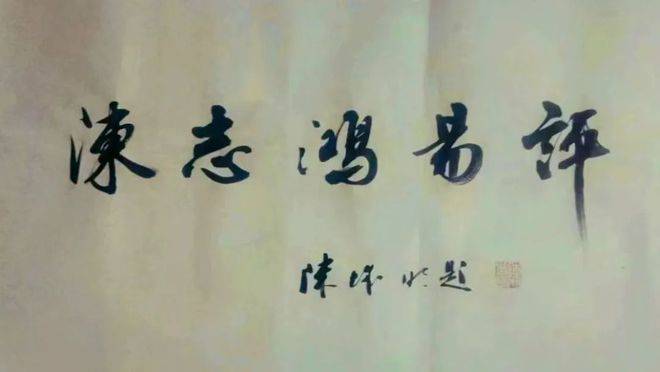 陳志鴻易評
陳題